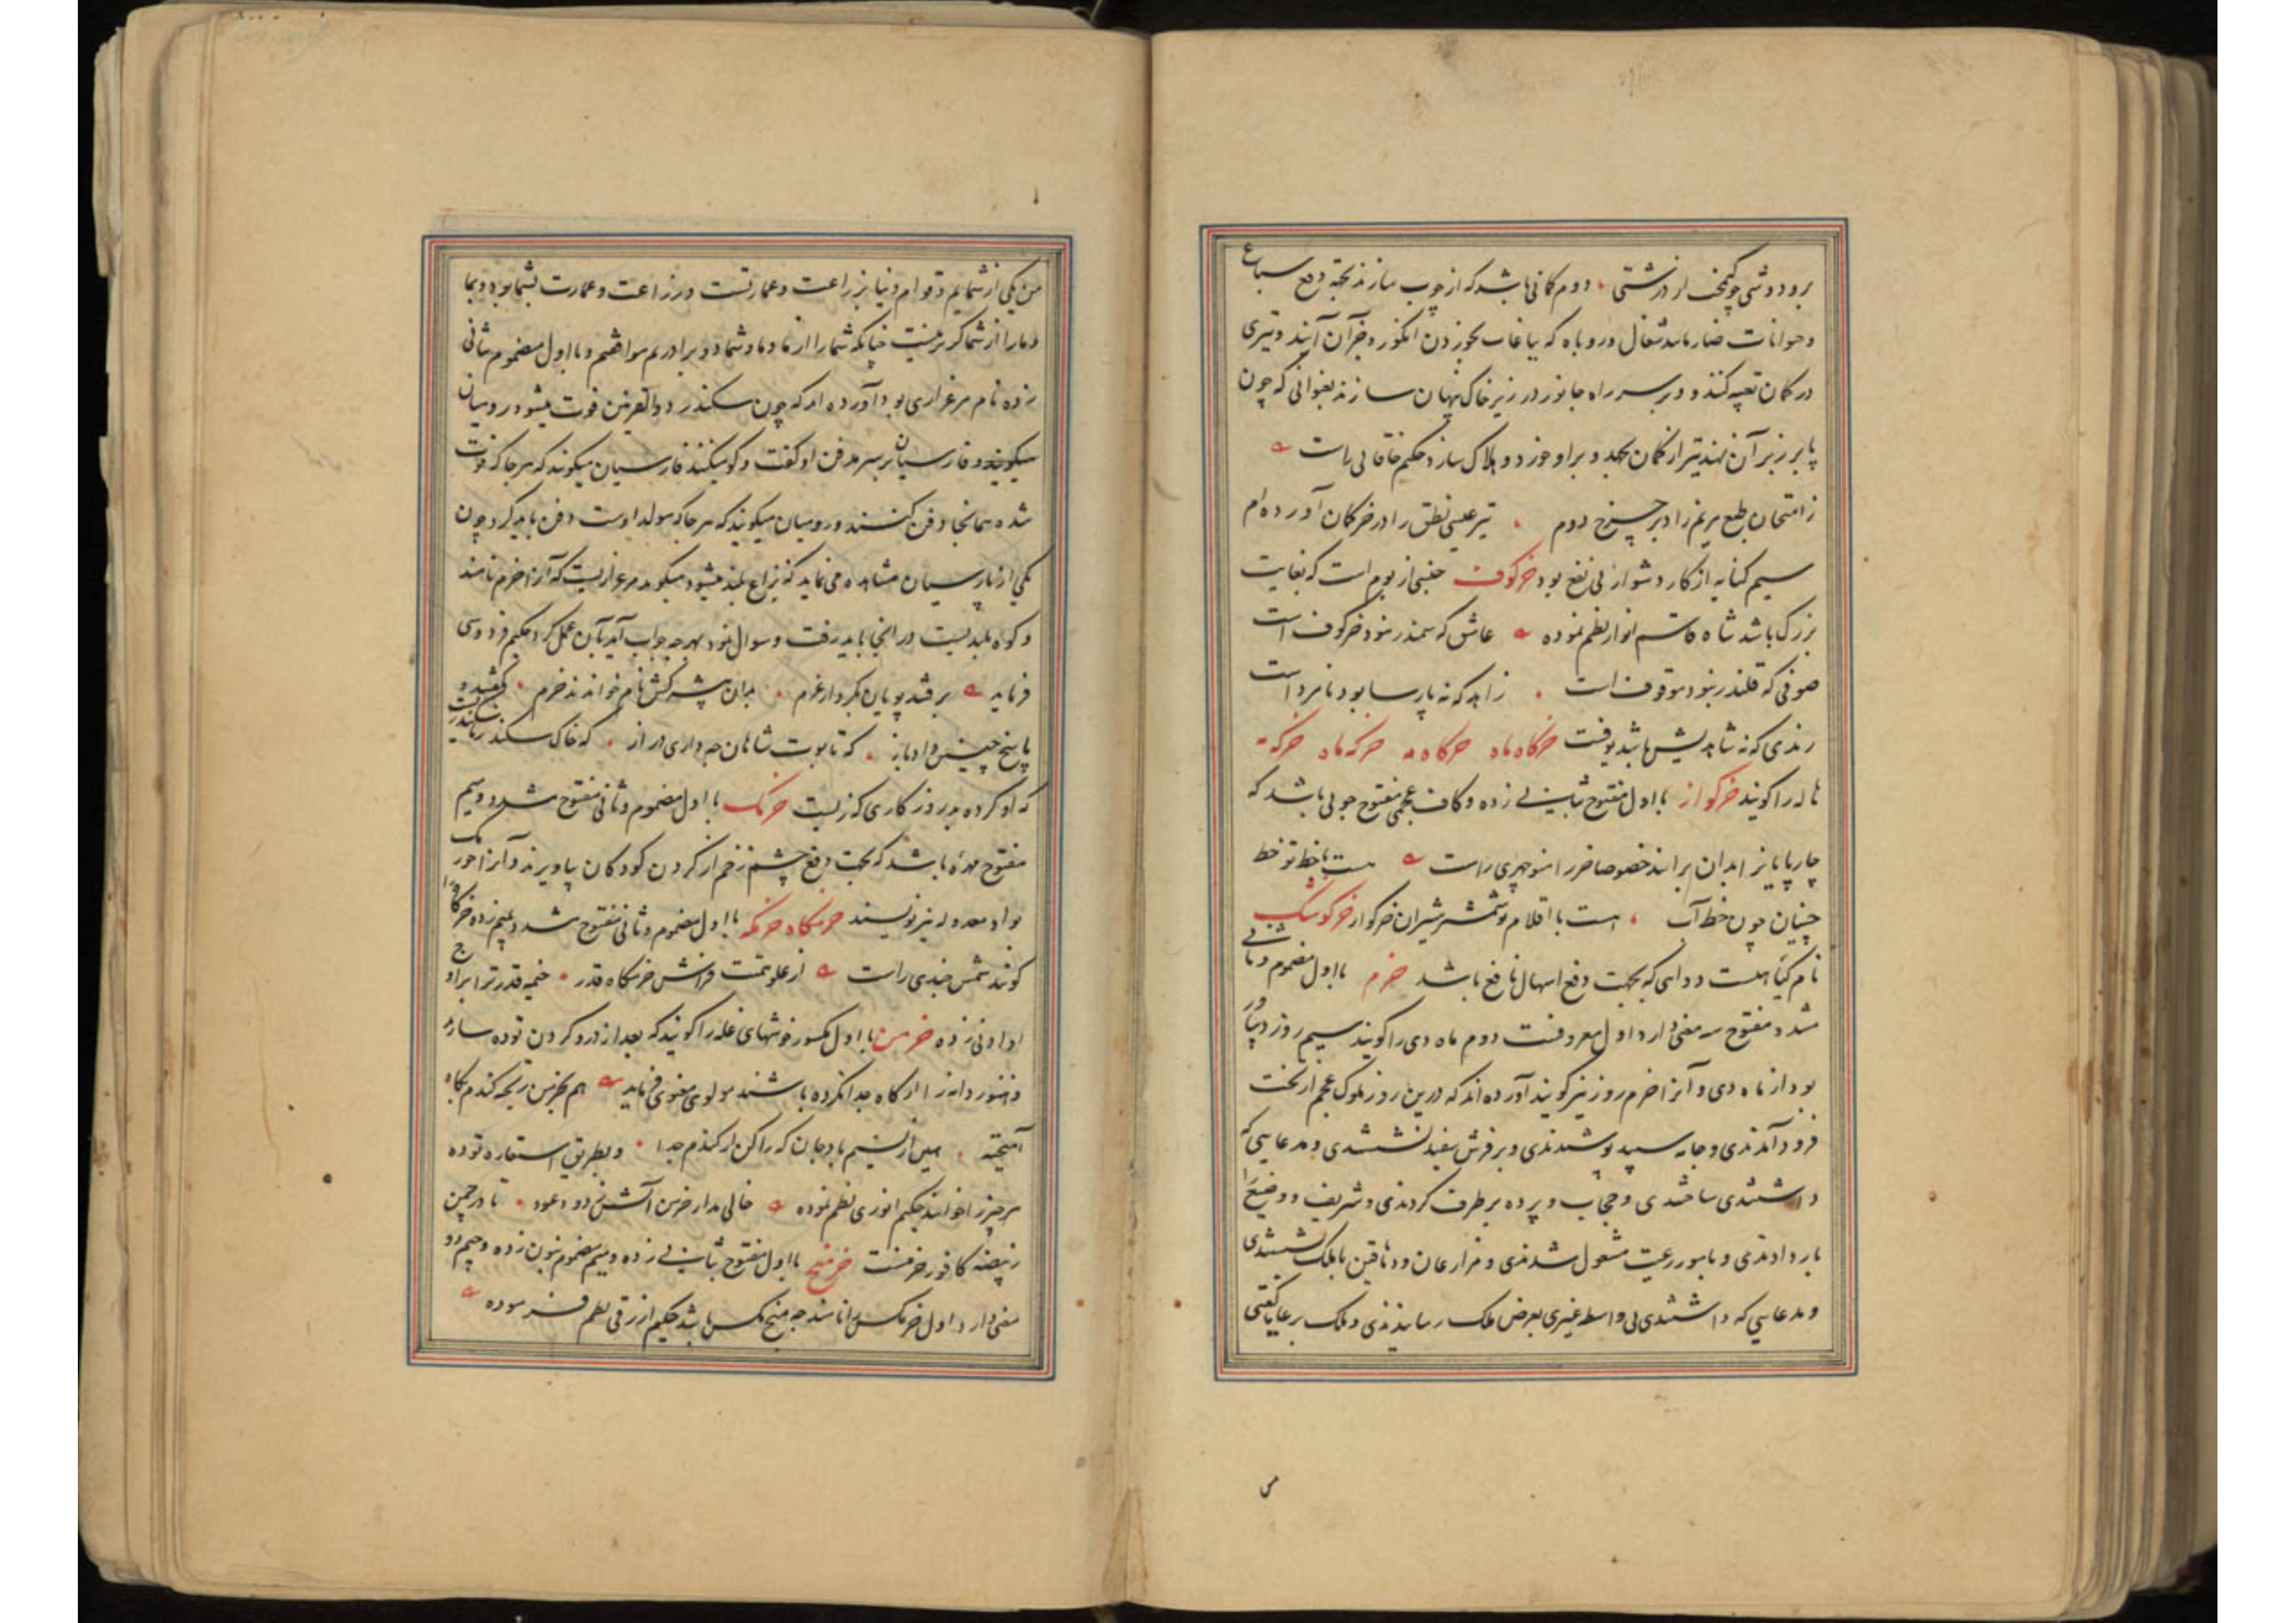 برو دوشی چو کیمخت از درشتی دوم کمانی باشد که از چوب سازند بجهة دفع سباع
و حیوانات ضار مانند شغال و روباه که بباغات بخوردن انگور و جز آن آیند و تیری
در کمان تعبیه کنند و در سر راه جانور در زیر خاک پنهان سازند بعنوانی که چون
پا بر زبر آن نهند تیر از کمان بجهد و بر او خورد و هلاک سازد حکیم خاقانی راست
ز امتحان طبع مریم زاد بر چرخ دوم تیر عیسی نطق را در خرکمان آورده ام
سیم کنایه از کار دشوار بی نفع بود خرکوف جنسی از بوم است که بغایت
بزرک باشد شاه قاسم انوار نظم نموده عاشق که سمندر نبود خرکوف است
صوفی که قلندر نبود موقوف است زاهد که نه پارسا بود نامرد است
رندی که نه شاهدیش باشد بوفست خرکاه ماه خرکاه مه خرکه ماه خرکه مه
هاله را کویند خرکواز با اول مفتوح بثانی زده و کاف عجمی مفتوح چوبی باشد که
چارپایانرا بدان برانند خصوصا خر را منوچهری راست هست با خط تو خط
چینیان چون خط آب هست با اقلام تو شمشیر شیران خرکواز خرکوشک
نام کیاهیست دوایی که بجهت دفع اسهال نافع باشد خرم با اول مضموم و ثانی
مشدد مفتوح سه معنی دارد اول معروفست دوم ماه دی را کویند سیم روز دیبادر
بود از ماه دی و آنرا خرم روز نیز کویند آورده اند که درین روز ملوک عجم از تخت
فرود آمدندی و جامه سپید پوشیدندی و بر فرش سفید نشستندی و مدعایی که
داشتندی ساختندی و حجاب و پرده بر طرف کردندی و شریف و وضیع را
بار دادندی و بامور رعیت مشغول شدندی و مزارعان و دهاقین با ملک نشستندی
و مدعایی که داشتندی بی واسطه غیری بعرض ملک رسانیدندی و ملک برعایا کفتی
من یکی از شمایم و قوام دنیا بزراعت و عمارتست و زراعت و عمارت بشما بود و بما
و ما را از شما کزیر نیست چنانکه شما را از ما و ما و شما دو برادریم موافقیم و با اول مضموم بثانی
زده نام مرغزاری بود آورده اند که چون سکندر ذوالقرنین فوت میشود رومیان
میکویند و فارسیان بر سر مدفن او کفت و کو میکنند فارسیان میکویند که هر جا که فوت
شده همانجا دفن کنند و رومیان میکویند که هر جا که مولد اوست دفن باید کرد چون
یکی از پارسیان مشاهده می نماید که نزاع بلند میشود میکوید مرغزاریست که آنرا خرم نامند
و کوه بلندیست در انجا باید رفت و سوال نمود بهرچه جواب آید بآن عمل کرد حکیم فردوسی
فرماید برفتند پویان بکردار غرم بدان بیشه کش نام خوانند خرم بکفتند و
پاسخ چنین داد باز که تابوت شاهان چه داری دراز که خاک سکندر باسکندریست
که او کرده بد روزکاری که زیست خرمک با اول مضموم و ثانی مفتوح مشدد و میم
مفتوح مهره باشد که بجهت دفع چشم زخم از کردن کودکان بیاویزند و آنرا خورمک
بواو معدوله نیز نویسند خرمکاه خرمکه با اول مضموم و ثانی مفتوح مشدد و میم زده خرکاه را
کویند شمس جندی راست از علو همت فراش خرمکاه قدر خیمه قدر ترا بر اوج
او ادنی زده خرمن با اول مکسور خوشهای غله را کویند که بعد از درو کردن توده سازند
و هنوز دانه را از کاه جدا نکرده باشند مولوی معنوی فرماید هم بخرمن ریخته کندم بکاه
آمیخته هین از نسیم باد جان که را کن از کندم جدا و بطریق استعاره توده
هر چیز را خوانند حکیم انوری نظم نموده خالی مدار خرمن آتش ز دود عود تا در چمن
ز بیضه کافور خرمنست خرمنج با اول مفتوح بثانی زده و میم مضموم بنون زده و جیم دو
معنی دارد اول خرمکس را نامند چه منج مکس باشد حکیم ازرقی نظم فرموده